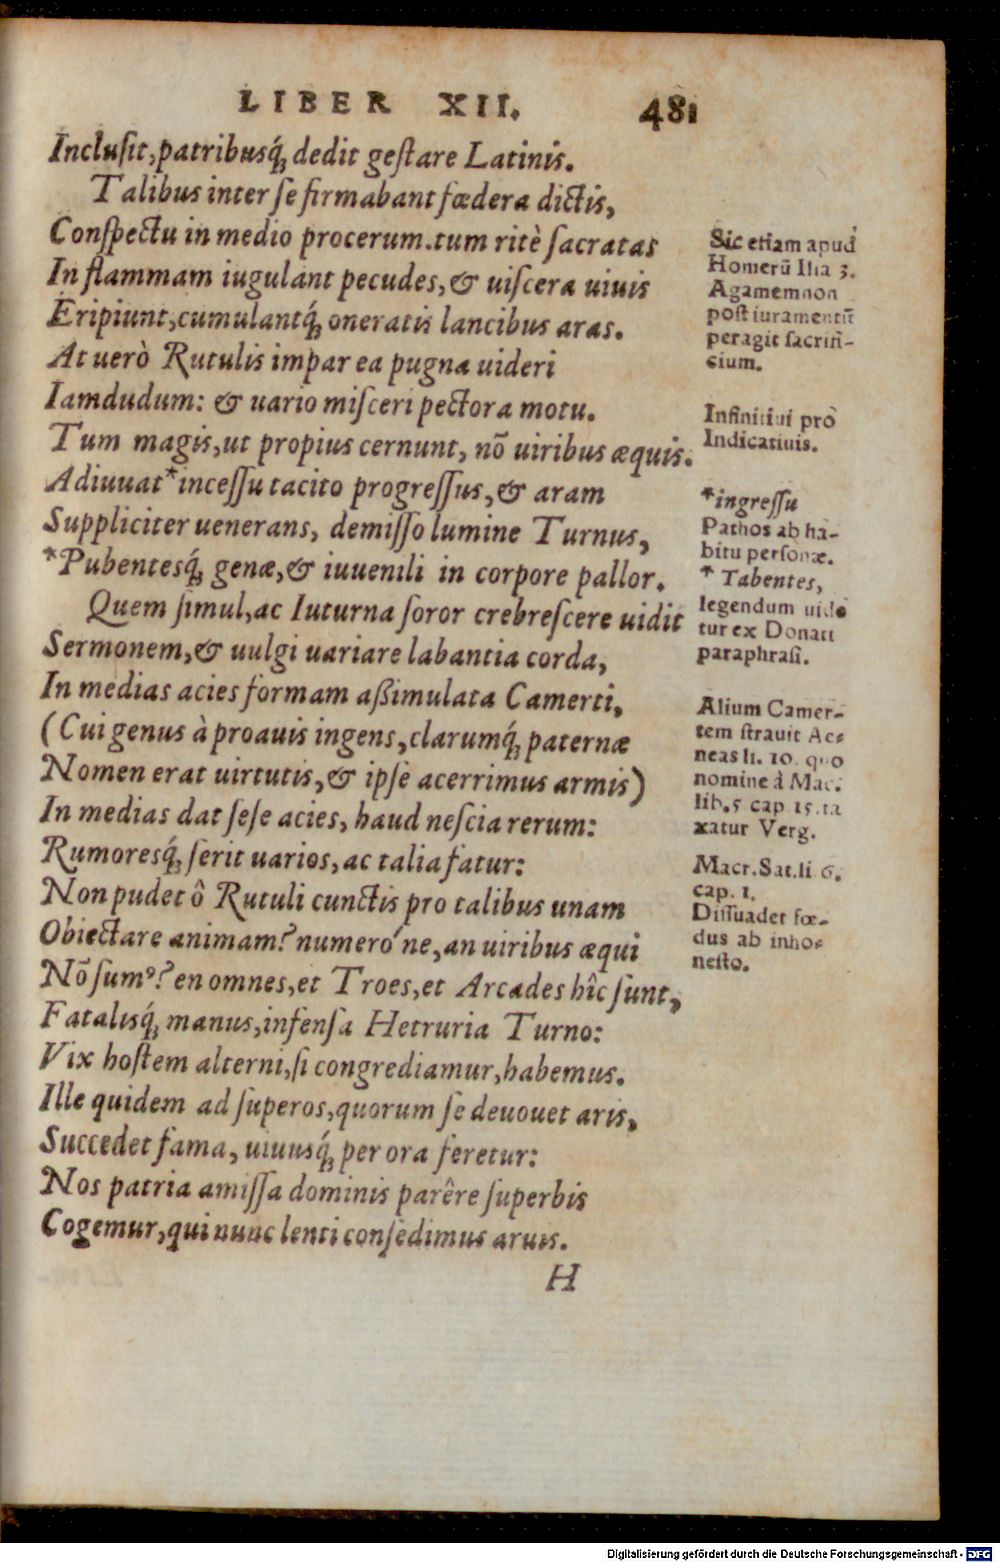 LIBER XII. 481
Inclusit, patribusq́; dedit gestare Latinis.
Talibus inter se firmabant fœdera dictis,
Conspectu in medio procerum. tum ritè sacratas
In flammam iugulant pecudes, & uiscera uiuis
Eripiunt, cumulantq́; oneratis lancibus aras.
At uerò Rutulis impar ea pugna uideri
Iamdudum: & uario misceri pectora motu.
Tum magis, ut propius cernunt, nō uiribus æquis.
Adiuuat *incessu tacito progressus, & aram
Suppliciter uenerans, demisso lumine Turnus,
*Pubentesq́; genæ, & iuuenili in corpore pallor.
Quem simul, ac Iuturna soror crebrescere uidit
Sermonem, & uulgi uariare labantia corda,
In medias acies formam aßimulata Camerti,
(Cui genus à proauis ingens, clarumq́; paternæ
Nomen erat uirtutis, & ipse acerrimus armis)
In medias dat sese acies, haud nescia rerum:
Rumoresq́; serit uarios, ac talia fatur:
Non pudet ô Rutuli cunctis pro talibus unam
Obiectare animam? numeró ne, an uiribus æqui
Nō sumꝰ? en omnes, et Troes, et Arcades hîc sunt,
Fatalisq́; manus, infensa Hetruria Turno:
Vix hostem alterni, si congrediamur, habemus.
Ille quidem ad superos, quorum se deuouet aris,
Succedet fama, uiuusq́; per ora feretur:
Nos patria amissa dominis parêre superbis
Cogemur, qui nunc lenti consedimus aruis.
H
Sic etiam apud
Homerū Ilia 3.
Agamemnon
post iuramentū
peragit sacrifi-
cium.
Infinitiui pro
Indicatiuis.
*ingressu
Pathos ab ha-
bitu personæ.
* Tabentes,
legendum uide
tur ex Donati
paraphrasi.
Alium Camer-
tem strauit Ae-
neas li. 10. quo
nomine à Mac.
lib. 5 cap 15. ta
xatur Verg.
Macr. Sat. li. 6.
cap. 1.
Dissuadet fœ-
dus ab inho-
nesto.
Digitalisierung gefördert durch die Deutsche Forschungsgemeinschaft - DFG